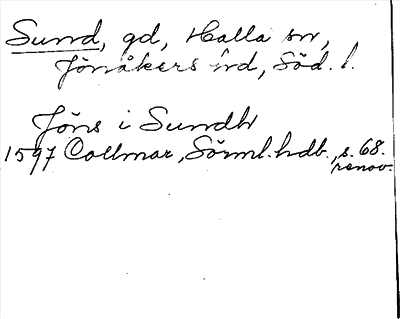 Sund, gd, Halla sn,
Jönåkers hd, Söd. l.
Jöns i Sundh
1597 Collmar, Sörml. hdb., s. 68.
renov.